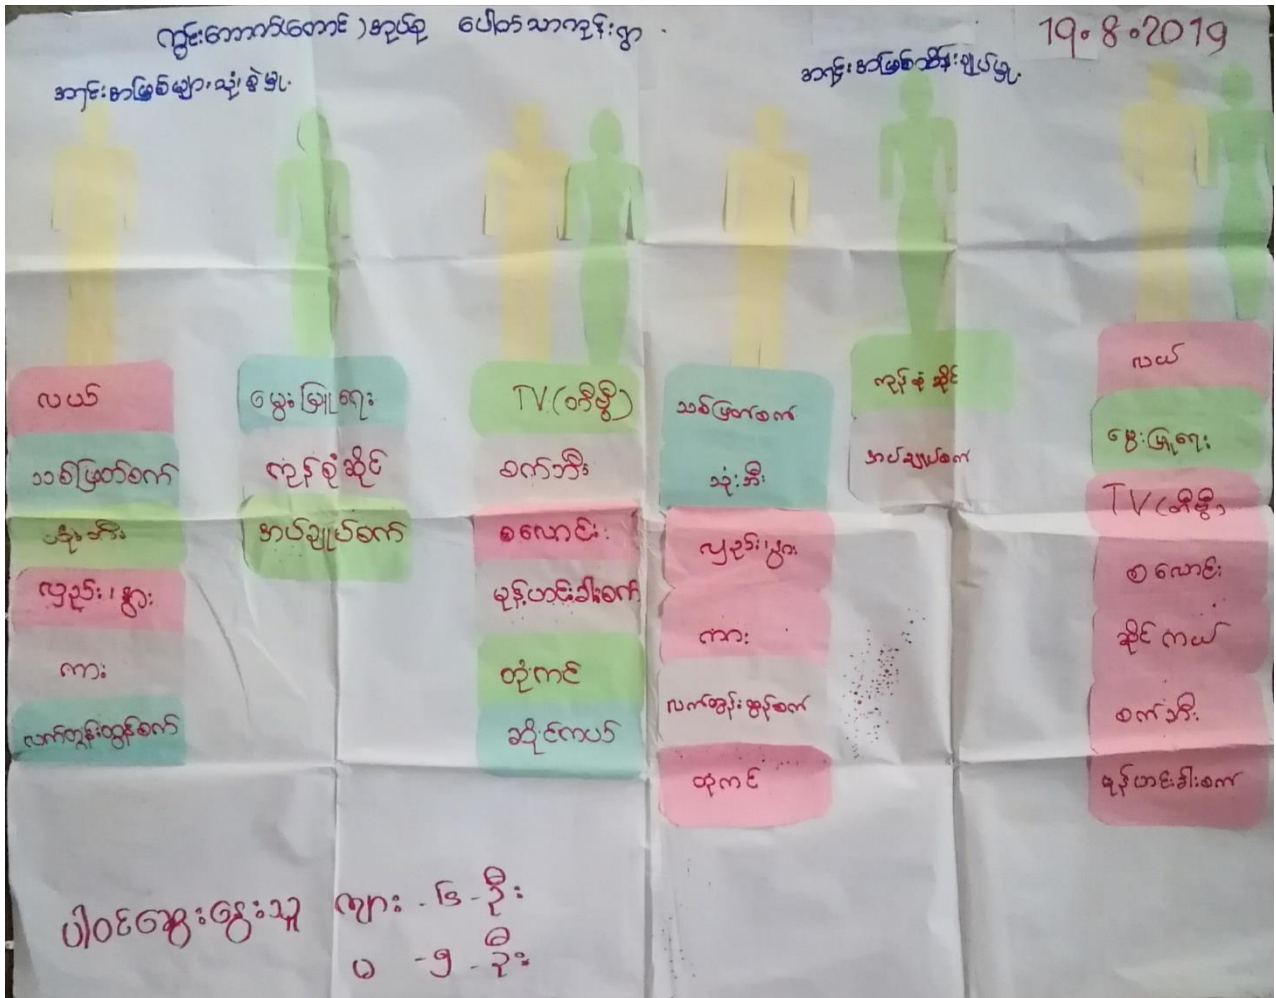 ကွင်းကောက်(တောင်)အုပ်စု ပေါတောသာကုန်းရွာ
19.8.2019
အရင်းအမြစ်များသုံးစွဲမှု
အရင်းအမြစ်ထိန်းချုပ်မှု
လယ်
သစ်ဖြတ်စက်
သုံးဘီး
လှည်း၊နွား
ကား
လက်တွန်းထွန်စက်
မွေးမြူရေး
ကုန်စုံဆိုင်
အပ်ချုပ်စက်
TV.(တီဗွီ)
စက်ဘီး
စလောင်း
မုန့်ဟင်းခါးစက်
ထုံကင်
ဆိုင်ကယ်
သစ်ဖြတ်စက်
သုံးဘီး
လှည်း၊နွား
ကား
လက်တွန်းထွန်စက်
ထုကင်
ကုန်စုံဆိုင်
အပ်ချုပ်စက်
လယ်
မွေးမြူရေး
TV(တီဗွီ)
စလောင်း
ဆိုင်ကယ်
စက်ဘီး
မုန့်ဟင်းခါးစက်
ပါဝင်ဆွေးနွေးသူ ကျား - ၆ - ဦး
မ - ၅ - ဦး